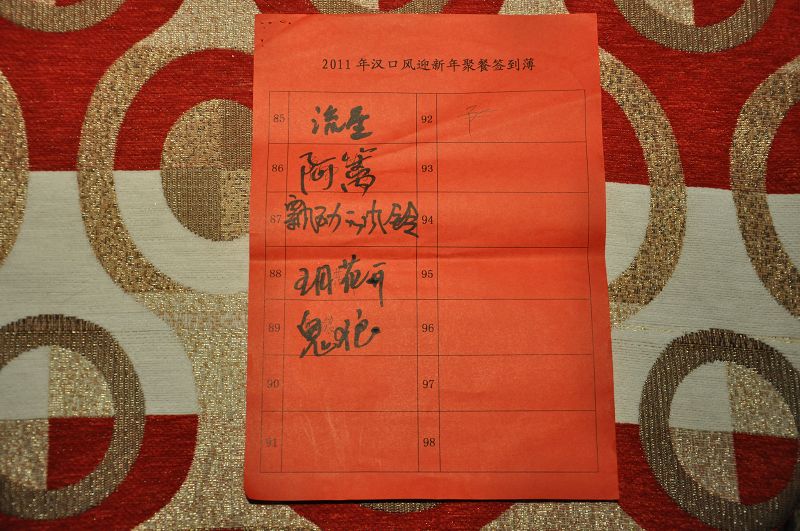 2011年汉口风迎新年聚餐签到薄
85 流星 92
86 阿篱 93
87 飘动的风铃 94
88 玥花开 95
89 鬼狼 96
90 97
91 98